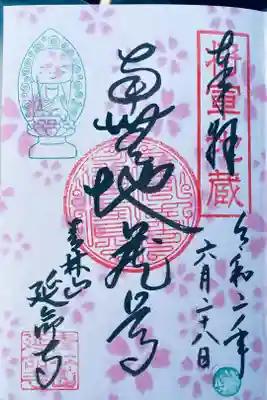 奉拝
将軍地蔵
令和二年
六月二十八日
南無地蔵尊
延命寺